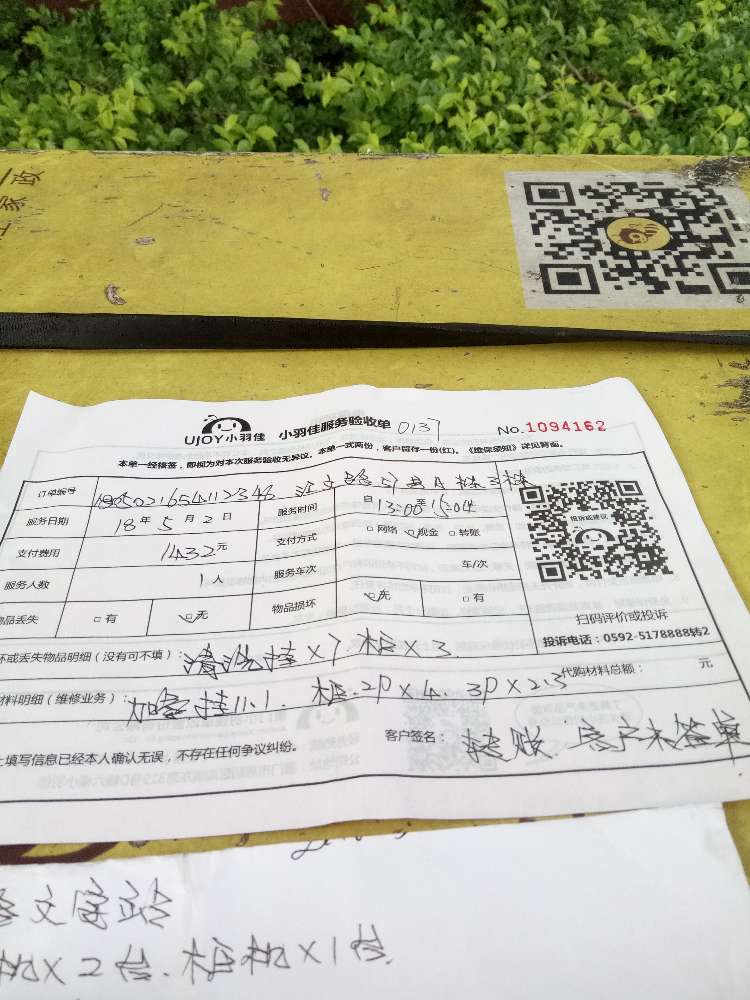 家政
UJOY小羽佳 小羽佳服务验收单 0137 No.1094162
本单一经核签,即视为对本次服务验收无异议。本单一式两份,客户留存一份(红)。《查保须知》详见背面。
订单编号 1805021654112346
服务日期 18年5月2日 服务时间 自13:00至15:04
支付费用 1432元 支付方式 □网络 ☑现金 □转账
服务人数 1人 服务车次 车/次
物品丢失 □有 ☑无 物品损坏 ☑无 □有
投诉或建议
扫码评价或投诉
投诉电话:0592-5178888转2
坏或丢失物品明细(没有可不填):清洗挂×7 柜×3.
材料明细(维修业务):加密挂11.1. 柜.2P×4. 3P×2.3 代购材料总额: 元
上填写信息已经本人确认无误,不存在任何争议纠纷。 客户签名:转账. 客户未签单
机×2台.柜机×1台.